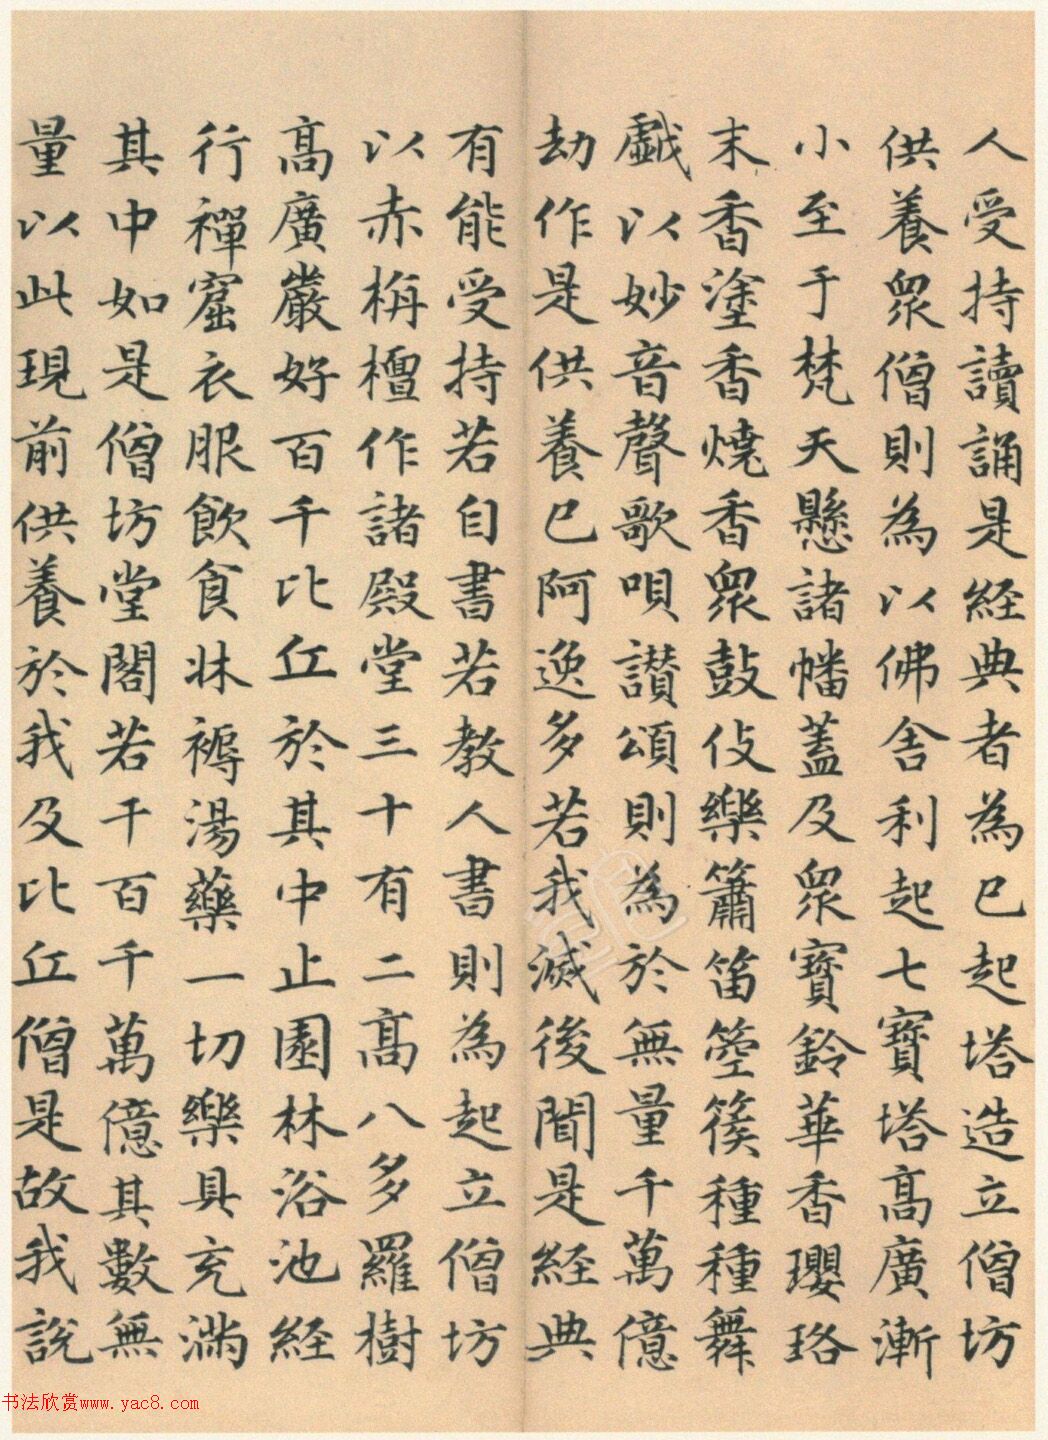 人受持讀誦是経典者為已起塔造立僧坊
供養衆僧則為以佛舍利起七寶塔髙廣漸
小至于梵天懸諸幡蓋及衆寶鈴華香瓔珞
末香塗香燒香衆鼓伎樂簫笛箜篌種種舞
戯以妙音聲歌唄讃頌則為於無量千萬億
劫作是供養已阿逸多若我滅後聞是経典
有能受持若自書若教人書則為起立僧坊
以赤栴檀作諸殿堂三十有二髙八多羅樹
髙廣嚴好百千比丘於其中止園林浴池経
行禪窟衣服飲食牀褥湯藥一切樂具充滿
其中如是僧坊堂閣若干百千萬億其數無
量以此現前供養於我及比丘僧是故我說
书法欣赏www.yac8.com